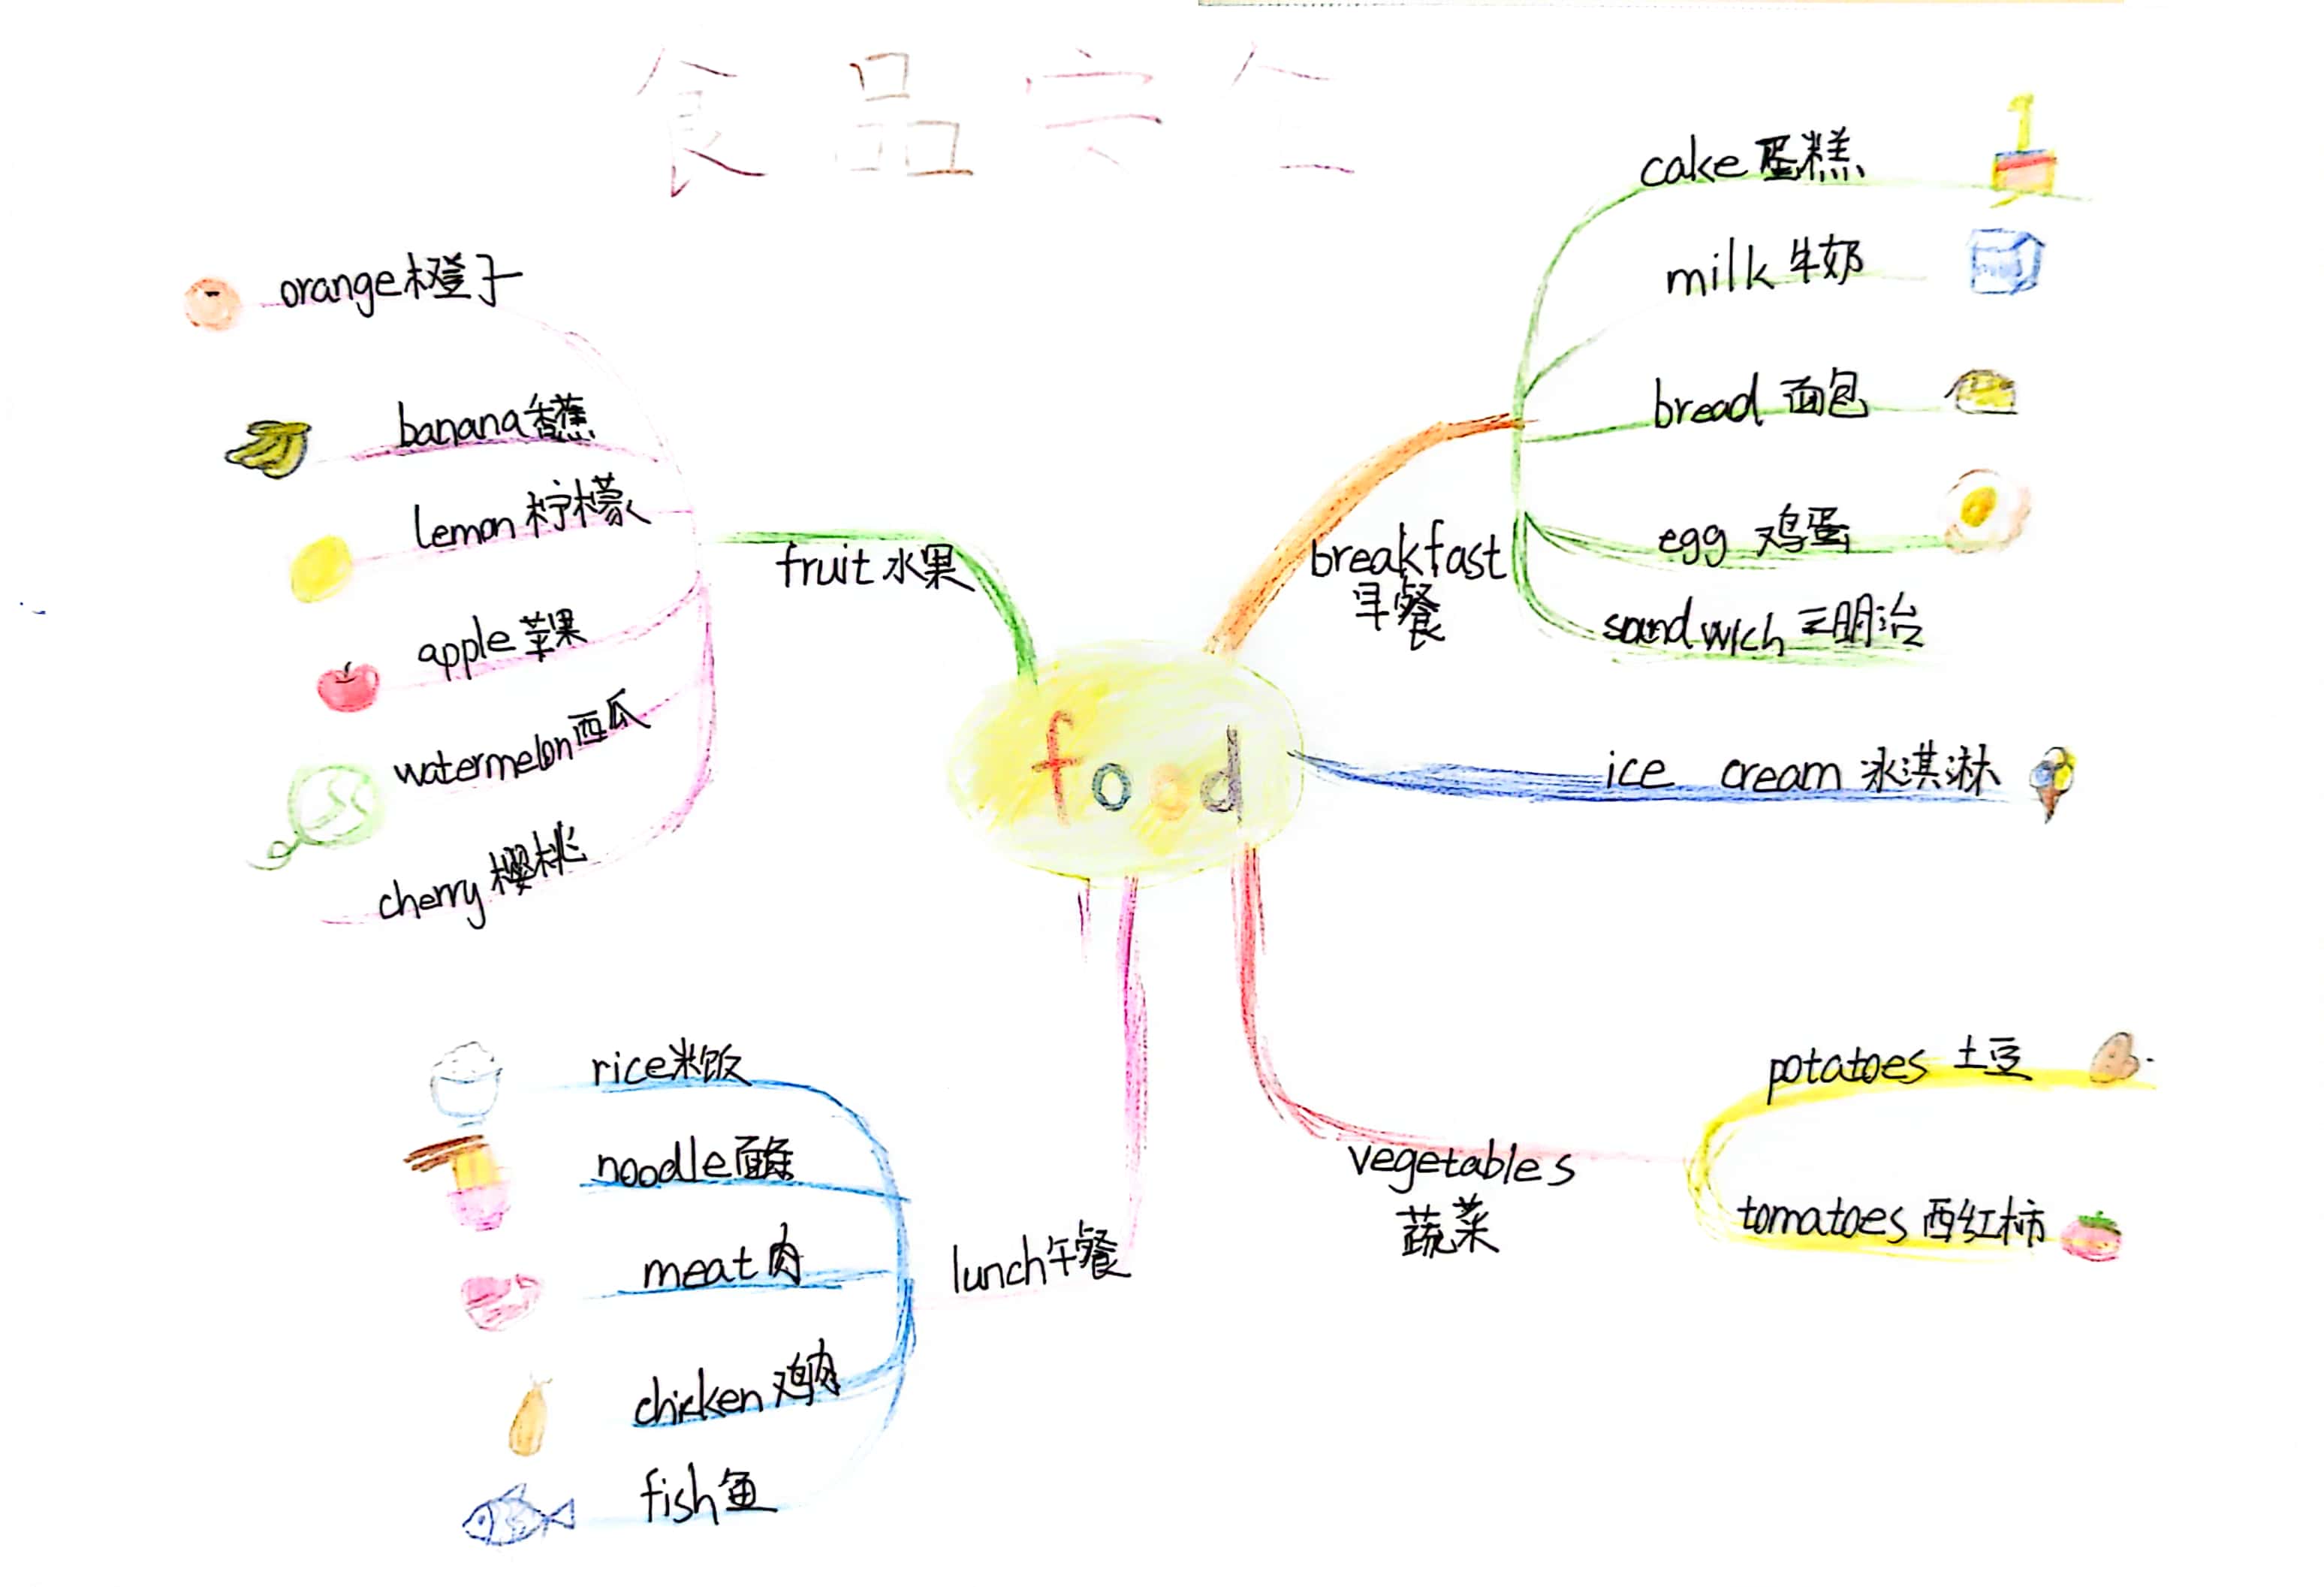 食品安全
orange 橙子
banana 香蕉
lemon 柠檬
apple 苹果
watermelon 西瓜
cherry 樱桃
fruit 水果
food
breakfast
早餐
cake 蛋糕
milk 牛奶
bread 面包
egg 鸡蛋
sandwich 三明治
ice cream 冰淇淋
vegetables
蔬菜
potatoes 土豆
tomatoes 西红柿
lunch 午餐
rice 米饭
noodle 面条
meat 肉
chicken 鸡肉
fish 鱼